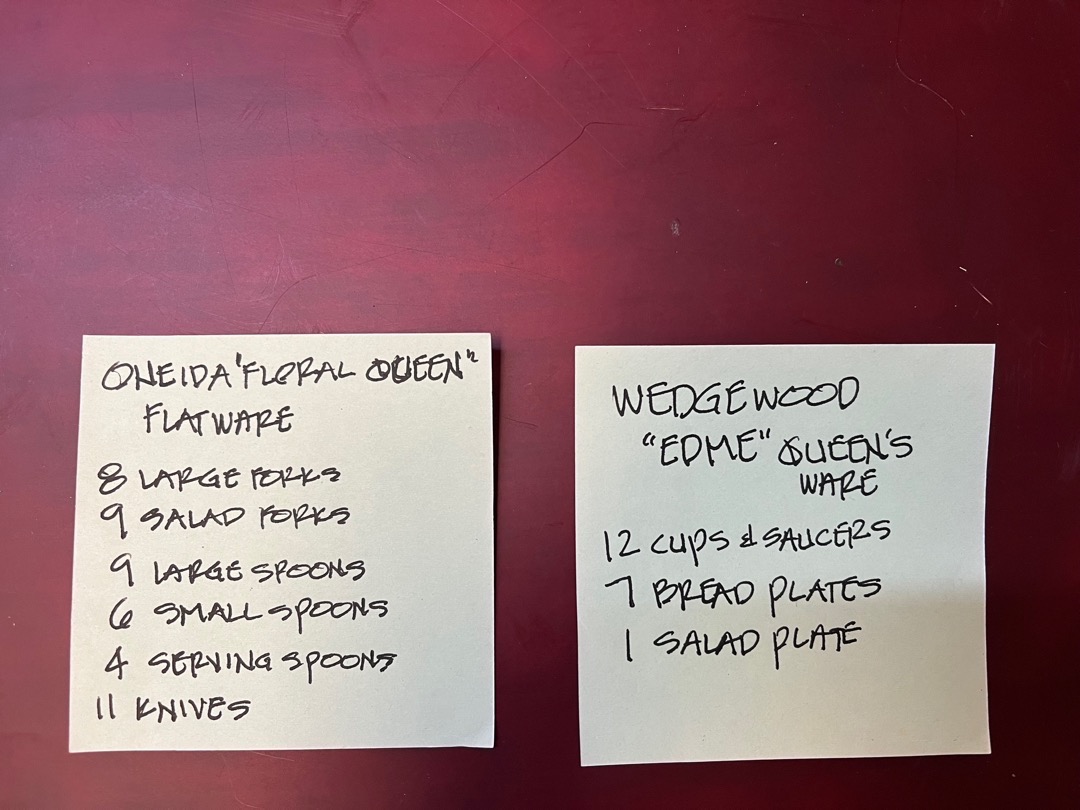 ONEIDA "FLORAL QUEEN"
FLATWARE
8 LARGE FORKS
9 SALAD FORKS
9 LARGE SPOONS
6 SMALL SPOONS
4 SERVING SPOONS
11 KNIVES
WEDGEWOOD
"EDME" QUEEN'S
WARE
12 CUPS & SAUCERS
7 BREAD PLATES
1 SALAD PLATE